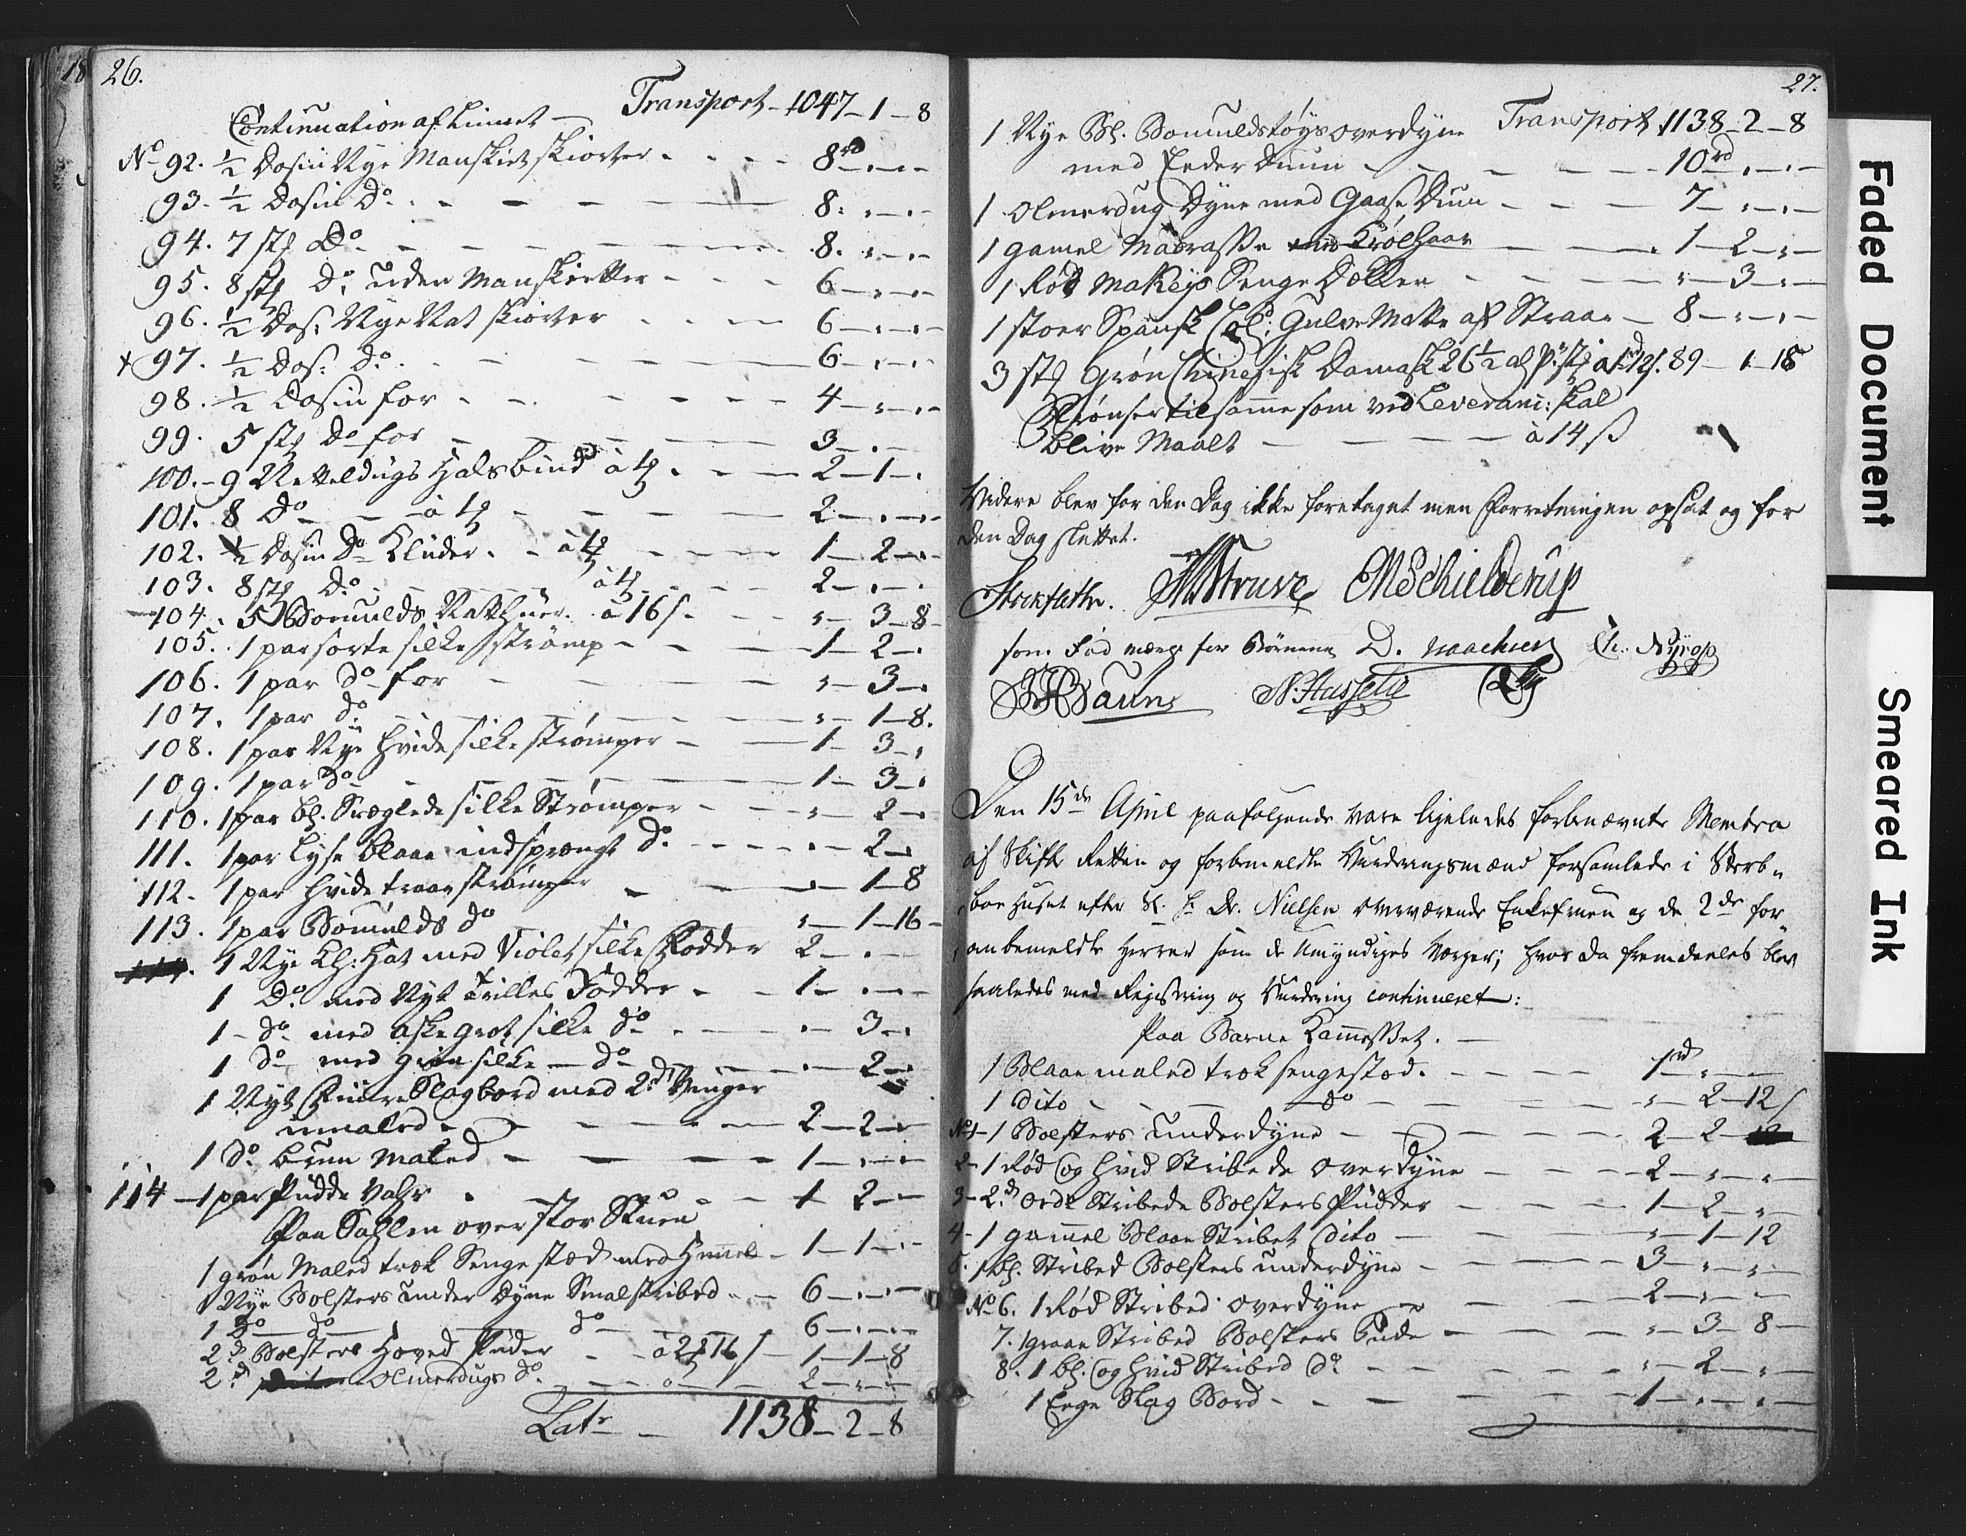 18
26.
Continuation af Linnet — Transport — 1047 — 1 — 8
No 92. ½ Dosin Nye Manskiet skiorter . - - - 8 rd — . —
93. ½ Dosin Do. - - - 8. „ — . —
94. 7 stk Do. - - - 8. „ — . —
95. 8 stk Do. uden Manskietter - - - 6 — „ — . —
96. ½ Dos: Nye Nat skiorter - - - 6 — „ — „ —
+ 97. ½ Dos: Do. - - - 6 — „ — . —
98. ½ Dosin for - - - 4 — „ — . —
99. 5 stk Do for - - - 3 — . —
100. - 9 Netteldugs Halsbind à 1 ₰. - - 2 — 1 — .
101. 8 Do — — à 1 ₰ - - - 2 — . — . —
102. ½ Dosin Do Klüder. - à 1 ₰ - - - 1 — 2 — . —
103. 8 stk Do. - - à 1 ₰ - - - 2 — . — .
104. 5 Bomulds Natthüer. à 16 ſ. - - „ — 3 — 8 —
105. 1 par sorte silke strömp - - - 1 — 2 — .
106. 1 par Do for - - - „ — 3 — .
107. 1 par Do. - - - „ — 1 — 8.
108. 1 par Nye hvide silke strømper - - 1 — 3 — ,
109. 1 par Do - - - 1 — 3 — .
110. 1 par bl. Sræglede silke Strømper - - - „ — 2 — .
111. 1 par Lyse blaae indsprængt Do. - - - . — 2 — .
112. 1 par hvide traae strømper - - - „ — 1 — 8
113. 1 par Bomulds Do „ — 1 — 16 —
114. 1 Nye Kl: Hat med Violet silke Fodder 2 — . —
1 Do. med Nyt Trilles Fodder - - 1 — . — . —
1 - Do med aske graat silke Do . - - . — 3 — .
1 Do med grön silke — Do - - . — 2 — .
1 Nyt Fiürre Slagbord med 2de Venger
umaled - - - 2 — 2 — . —
1 Do. brun Maled - - - 1 — . — . —
114 — 1 par Pudde Vahr . - - - 1 — 2 — . —
Paa Sahlen over stor Stuen
1 grøn Maled træk Senge sted med Himmel — 1 — 1 — . —
1 Nye Bolsters under Dyne Smalstribed - - 6 — . — . —
1 Do — Do — Do - - 6 — . — . —
2de Bolsters Hoved Püder - - à 2 ₰ 16 ſ — 1 — 1 — 8
2de Olmerdugs Do. - - à - - 2 — „ — „ —
Latr — 1138 — 2 — 8
27.
1 Nye Bl. Bomuldstøys overdyne Transport 1138 — 2 — 8
med Eeder Duun - - - 10 rd — . — . —
1 Olmerdug Dyne med Gaase Duun - - - 7 — „ — . —
1 gamel Madrasse med Krølhaar - - . 1 — 2 — „ —
1 Rød Makeys Senge Dækken - - - „ — 3 — „ —
1 stoer Spansk Col: Gulve Matte af Straae — 8 — „ — „ —
3 stk Grøn Chinesisk Damask 26½ al pr stk à 1 rd 12 ſ. 89 — 1 — 18
Frønser tilsamme som ved Leverani: skal
blive Maalt - - - à 14 ß
Videre blev for den Dag ikke foretaget men Forretningen opsat og for
den Dag sluttet.
Struve M Schielderup
som Lav værge for Børnene D. Isaachsen Ch. Nyrop
Baun N. Hassel
Den 15de April paafølgende vare ligeledes forbenævnte Membra
af Skifte Retten og forbemeldte Vurderingsmænd forsamlede i Sterb„
boe Huset efter Sl. Hr. Dr. Nielsen overværende Enkefruen og de 2de for„
anbemeldte Herrer som de Umyndiges Værger; hvor da fremdeeles blev
saaledes med Registering og Vurdering continueret:
Paa Barne Kammerset. —
1 Blaae maled træk sengested. - - - 1 rd — „ —
1 Dito - - - do - - - „ — 2 — 12 ſ
No 1 — 1 Bolsters underdyne - - - 2 — 2 —
2 — 1 Rød og Hvid Stribede overdyne - - 2 — „ — „
3 — 2de Stribede Bolsters Püdder - - - 1 — 2 — „ —
4 — 1 gammel Blaae Stribet Dito - - - „ — 1 — 12
5. 1 bl. Stribed Bolsters underdyne - - - 3 — „ — „ —
No 6. 1 Rød Stribed overdyne - - - 2 — „ — „ —
7. 1 graae Stribed Bolsters Pude - - - „ — 3 — 8 —
8. 1 bl. og Hvid Stribed Do - - - „ — 2 — „ —
1 Eege Slag Bord - - - 1 — „ — „ —
Faded Document
Smeared Ink